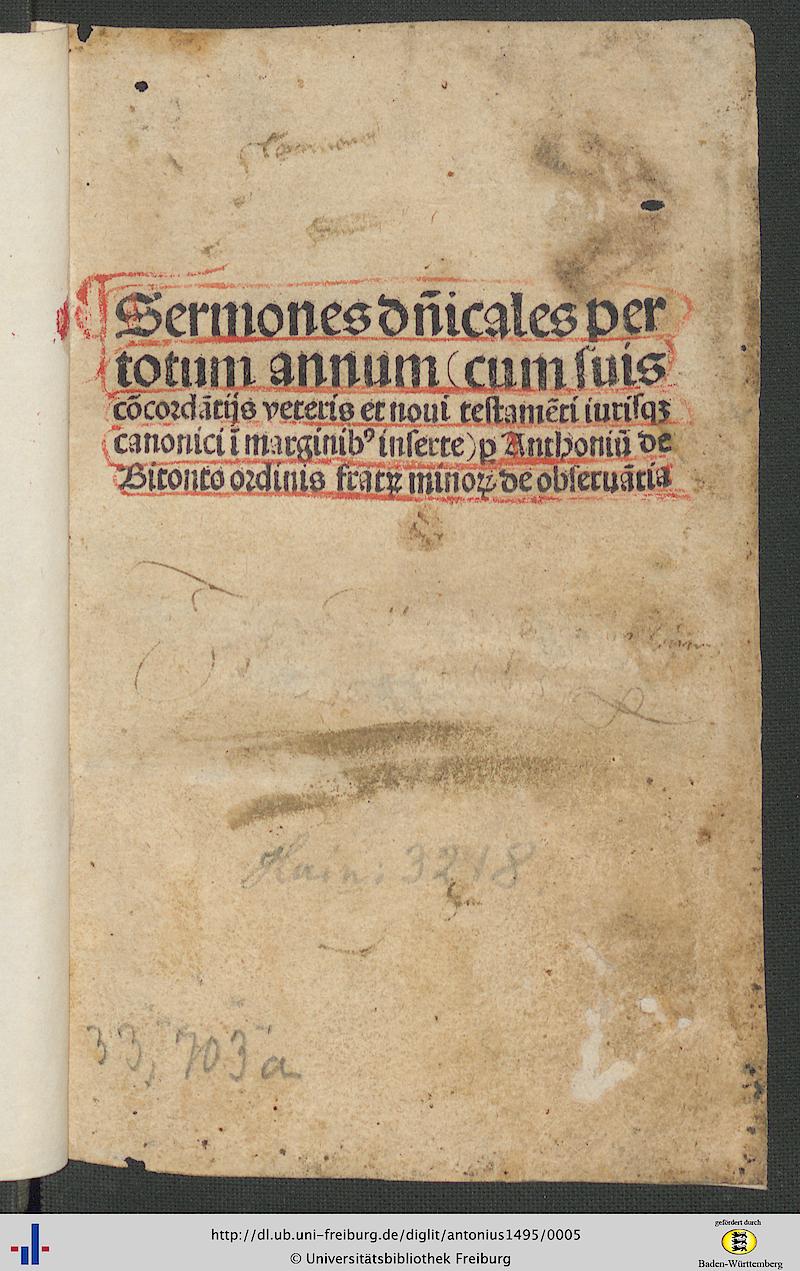 Sermones dn̄icales per
totum annum (cum suis
cōcordātijs veteris et noui testamēti iurisqꝫ
canonici ī marginibꝰ inserte) ꝑ Anthoniū de
Bitonto ordinis fratꝝ minoꝝ de obseruātia
Hain: 3218
33, 703 a
http://dl.ub.uni-freiburg.de/diglit/antonius1495/0005
© Universitätsbibliothek Freiburg
gefördert durch
Baden-Württemberg